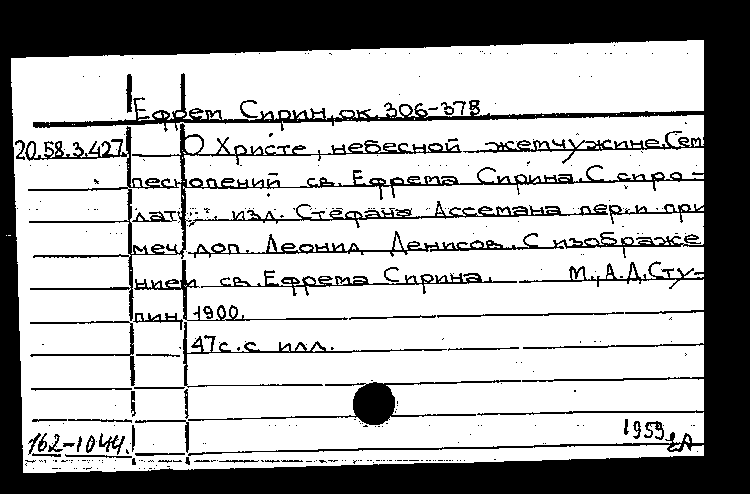 Ефрем Сирин, ок. 306-373.
20.58.3.427. О Христе, небесной жемчужине. Сем
песнопений св. Ефрема Сирина. С сиро-
лат. изд. Стефано Ассемана пер. и при
меч. доп. Леонид Денисов. С изображе
нием св. Ефрема Сирина. М., А.Д. Сту-
пин, 1900.
47 с. с илл.
162-1044. 1959